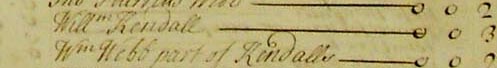 0 0 2
Will^m Kendall 0 0 3
W^m Webb part of Kendalls 0 0